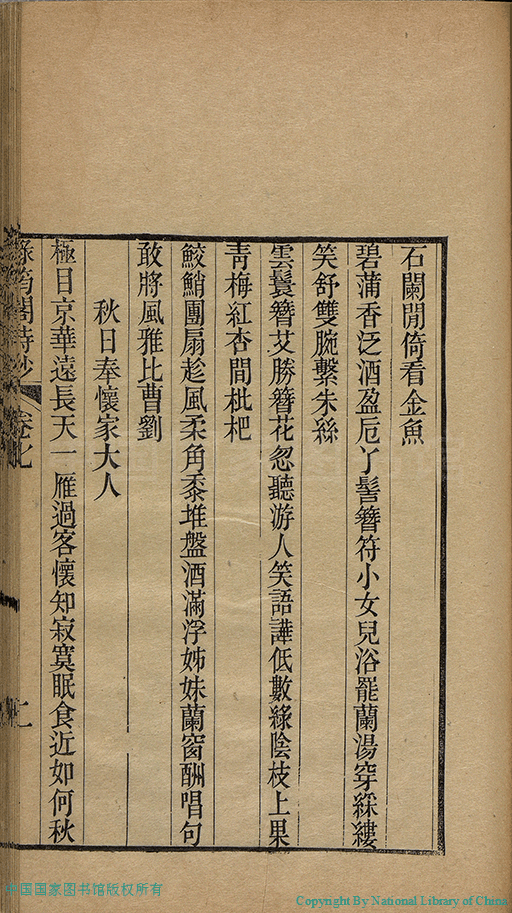 石闌閒倚看金魚
碧蒲香泛酒盈卮丫髻簪符小女兒浴罷蘭湯穿綵縷
笑舒雙腕繫朱絲
雲鬟簪艾勝簪花忽聽游人笑語譁低數綠陰枝上果
青梅紅杏間枇杷
鮫鮹團扇趁風柔角黍堆盤酒滿浮姊妹蘭窗酬唱句
敢將風雅比曹劉
秋日奉懷家大人
極目京華遠長天一雁過客懷知寂寞眠食近如何秋
綠筠閣詩鈔 卷七
中国国家图书馆版权所有
Copyright By National Library of China